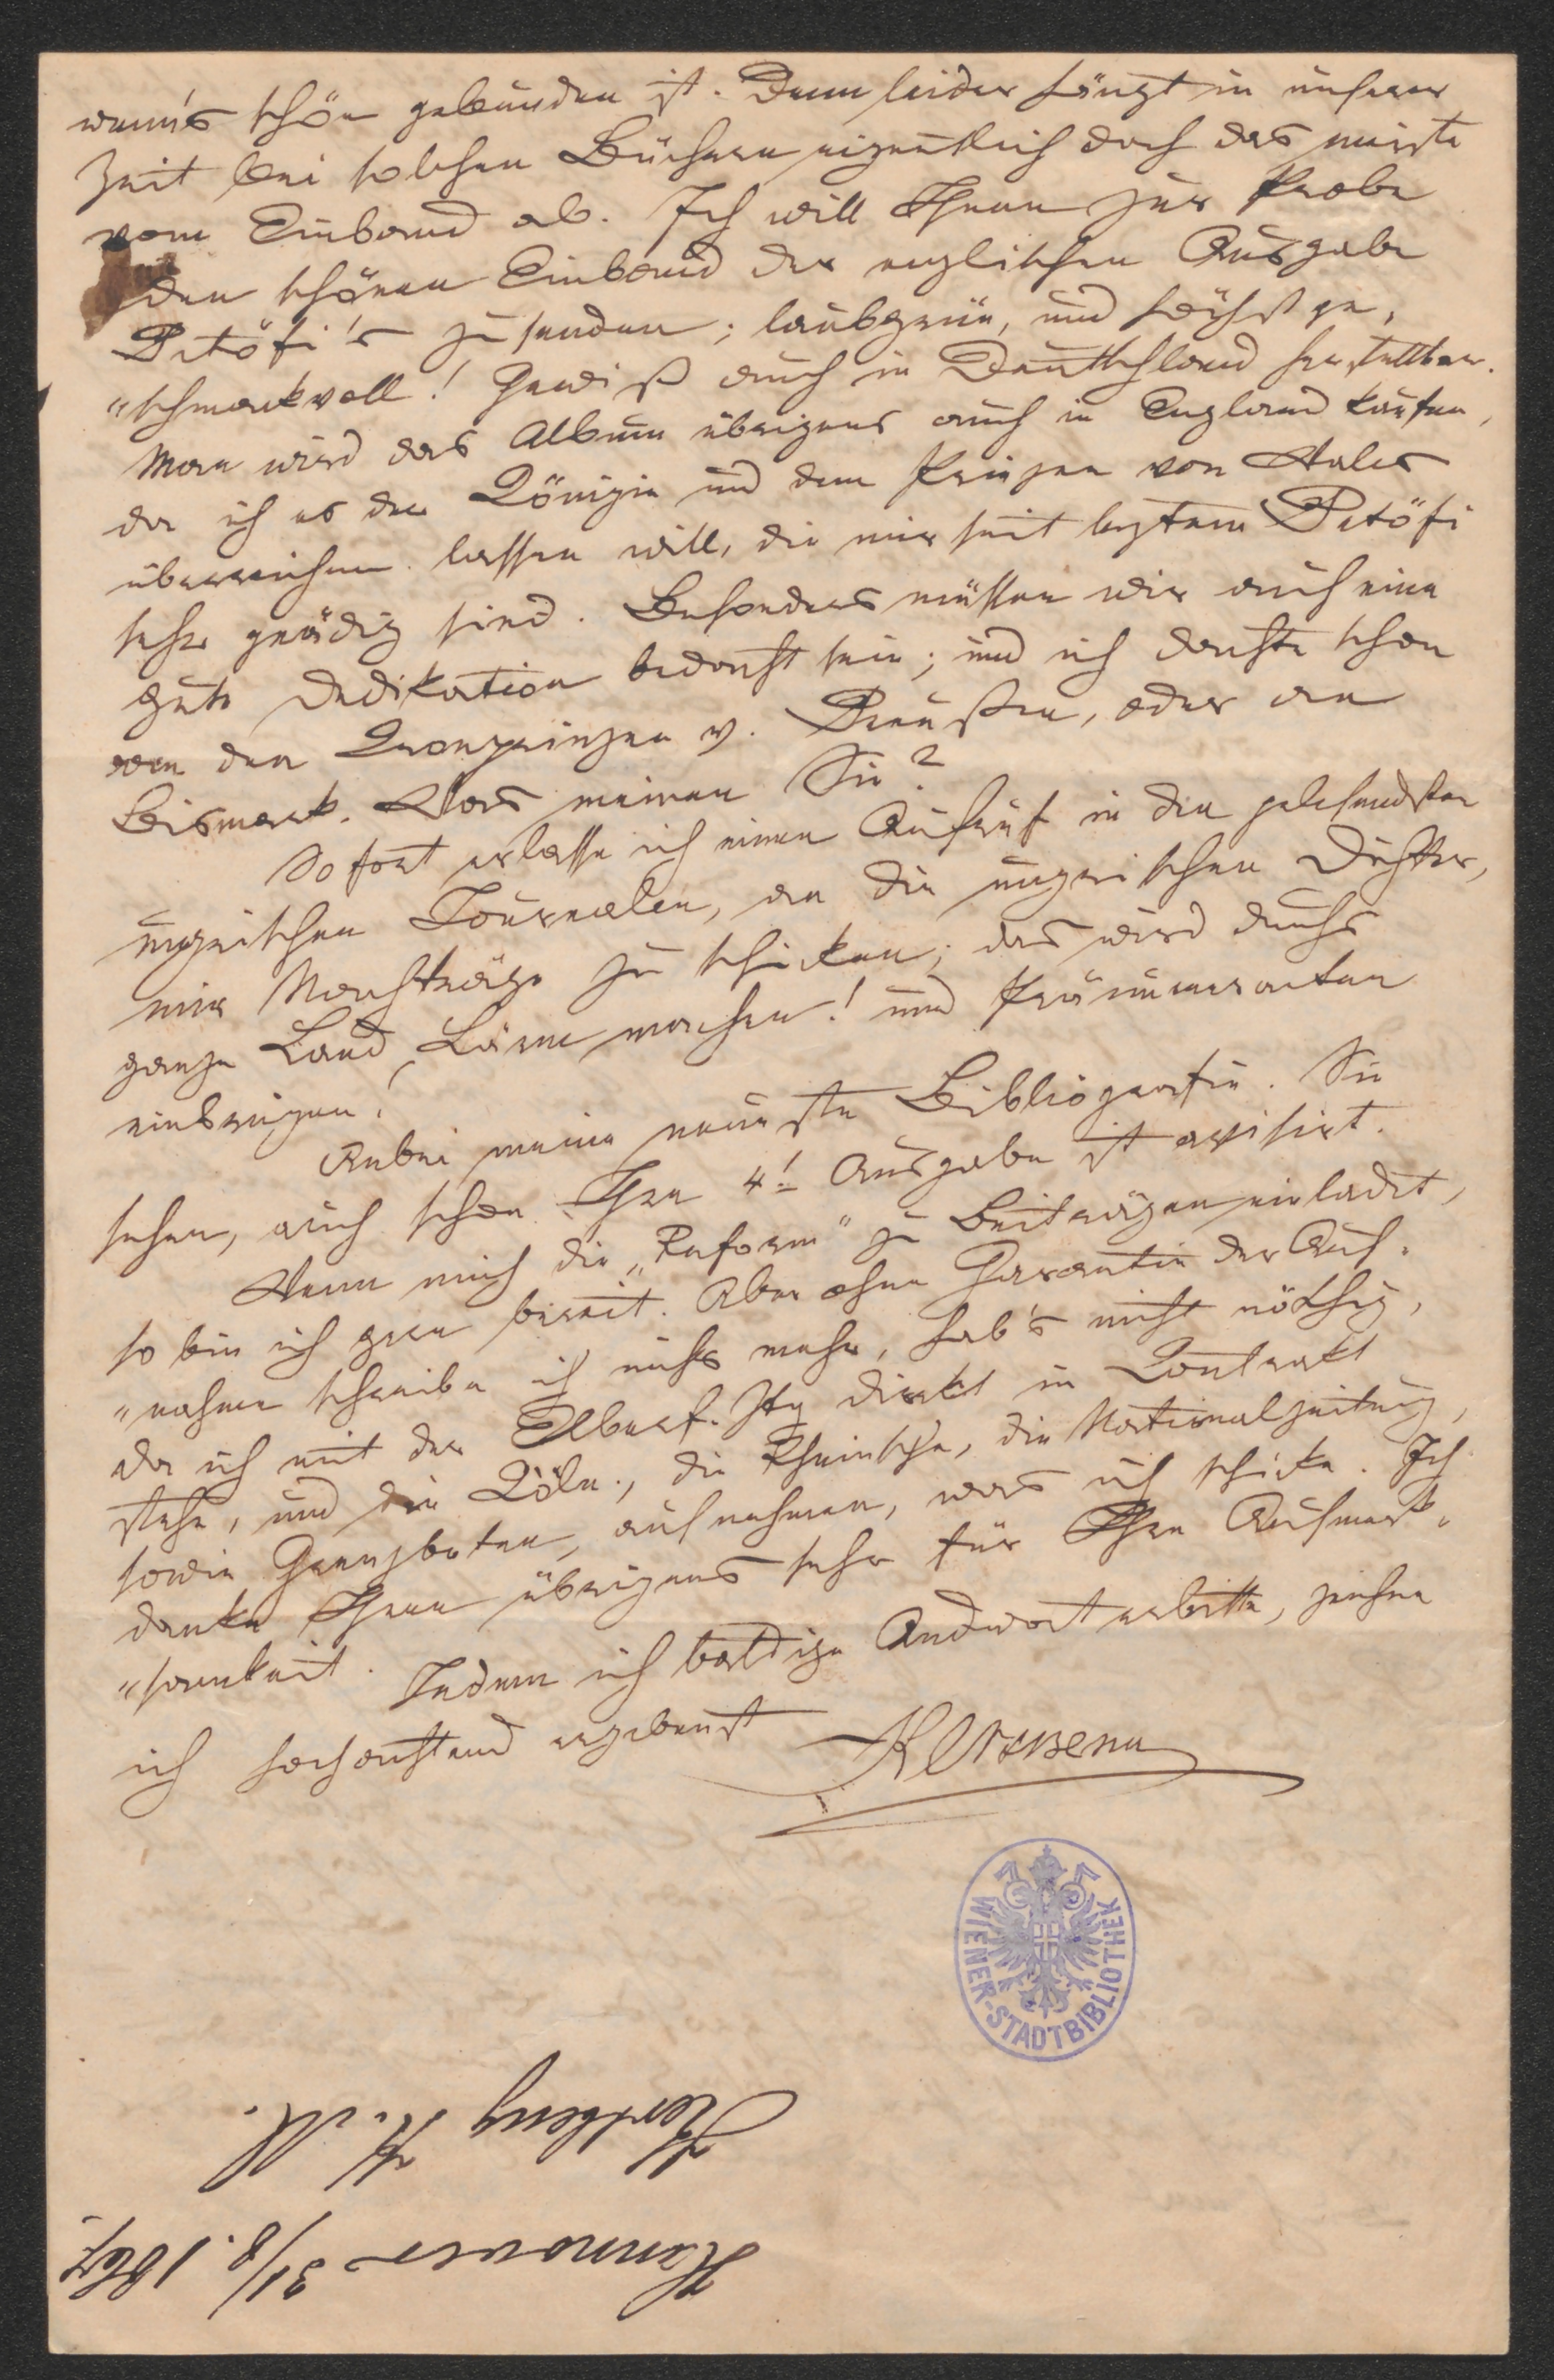 wenn's schön gebunden ist. Denn leider hängt in unserer
Zeit bei solchen Büchern eigentlich doch das meiste
vom Einband ab. Ich will Ihnen zur Probe
den schönen Einband der englischen Ausgabe
Petöfi's zusenden; laubgrün, und höchst ge-
"schmackvoll! Gewiß auch in Deutschland herstellbar.
Man wird das Album übrigens auch in England kaufen,
da ich es der Königin und dem Prinzen von Wales
überreichen lassen will, die mir seit leztem Petöfi
sehr gnädig sind. Besonders müssen wir auf eine
gute Dedikation bedacht sein; und ich dachte schon
an den Kronprinzen v. Preußen, oder an
Bismark. Was meinen Sie?
Sofort erlasse ich einen Aufruf in den gelesendsten
ungrischen Journalen, an die ungrischen Dichter,
mir Nachträge zu schicken; das wird durchs
ganze Land Lärm machen! und Pränumeranten
einbringen!
Anbei meine neueste Bibliografie. Sie
sehen, auch schon Ihre 4! Ausgabe ist avisirt.
Wenn mich die „Reform" zu Beiträgen einladet,
so bin ich gern bereit. Aber ohne Garantie der Auf-
"nahme schreibe ich nichts mehr, hab's nicht nöthig,
da ich mit der Elberf. Ztg direkt in Contrakt
stehe, und die Köln., die Rheinische, die Nationalzeitung,
sowie Grenzboten, aufnehmen, was ich schicke. Ich
danke Ihnen übrigens sehr für Ihre Aufmerk-
"samkeit. Indem ich baldige Andwort erbitte, zeichne
ich hochachtend ergebenst Kertbeny
WIENER-STADTBIBLIOTHEK
Hannover 31/8. 1867.
Kertbeny K. M.